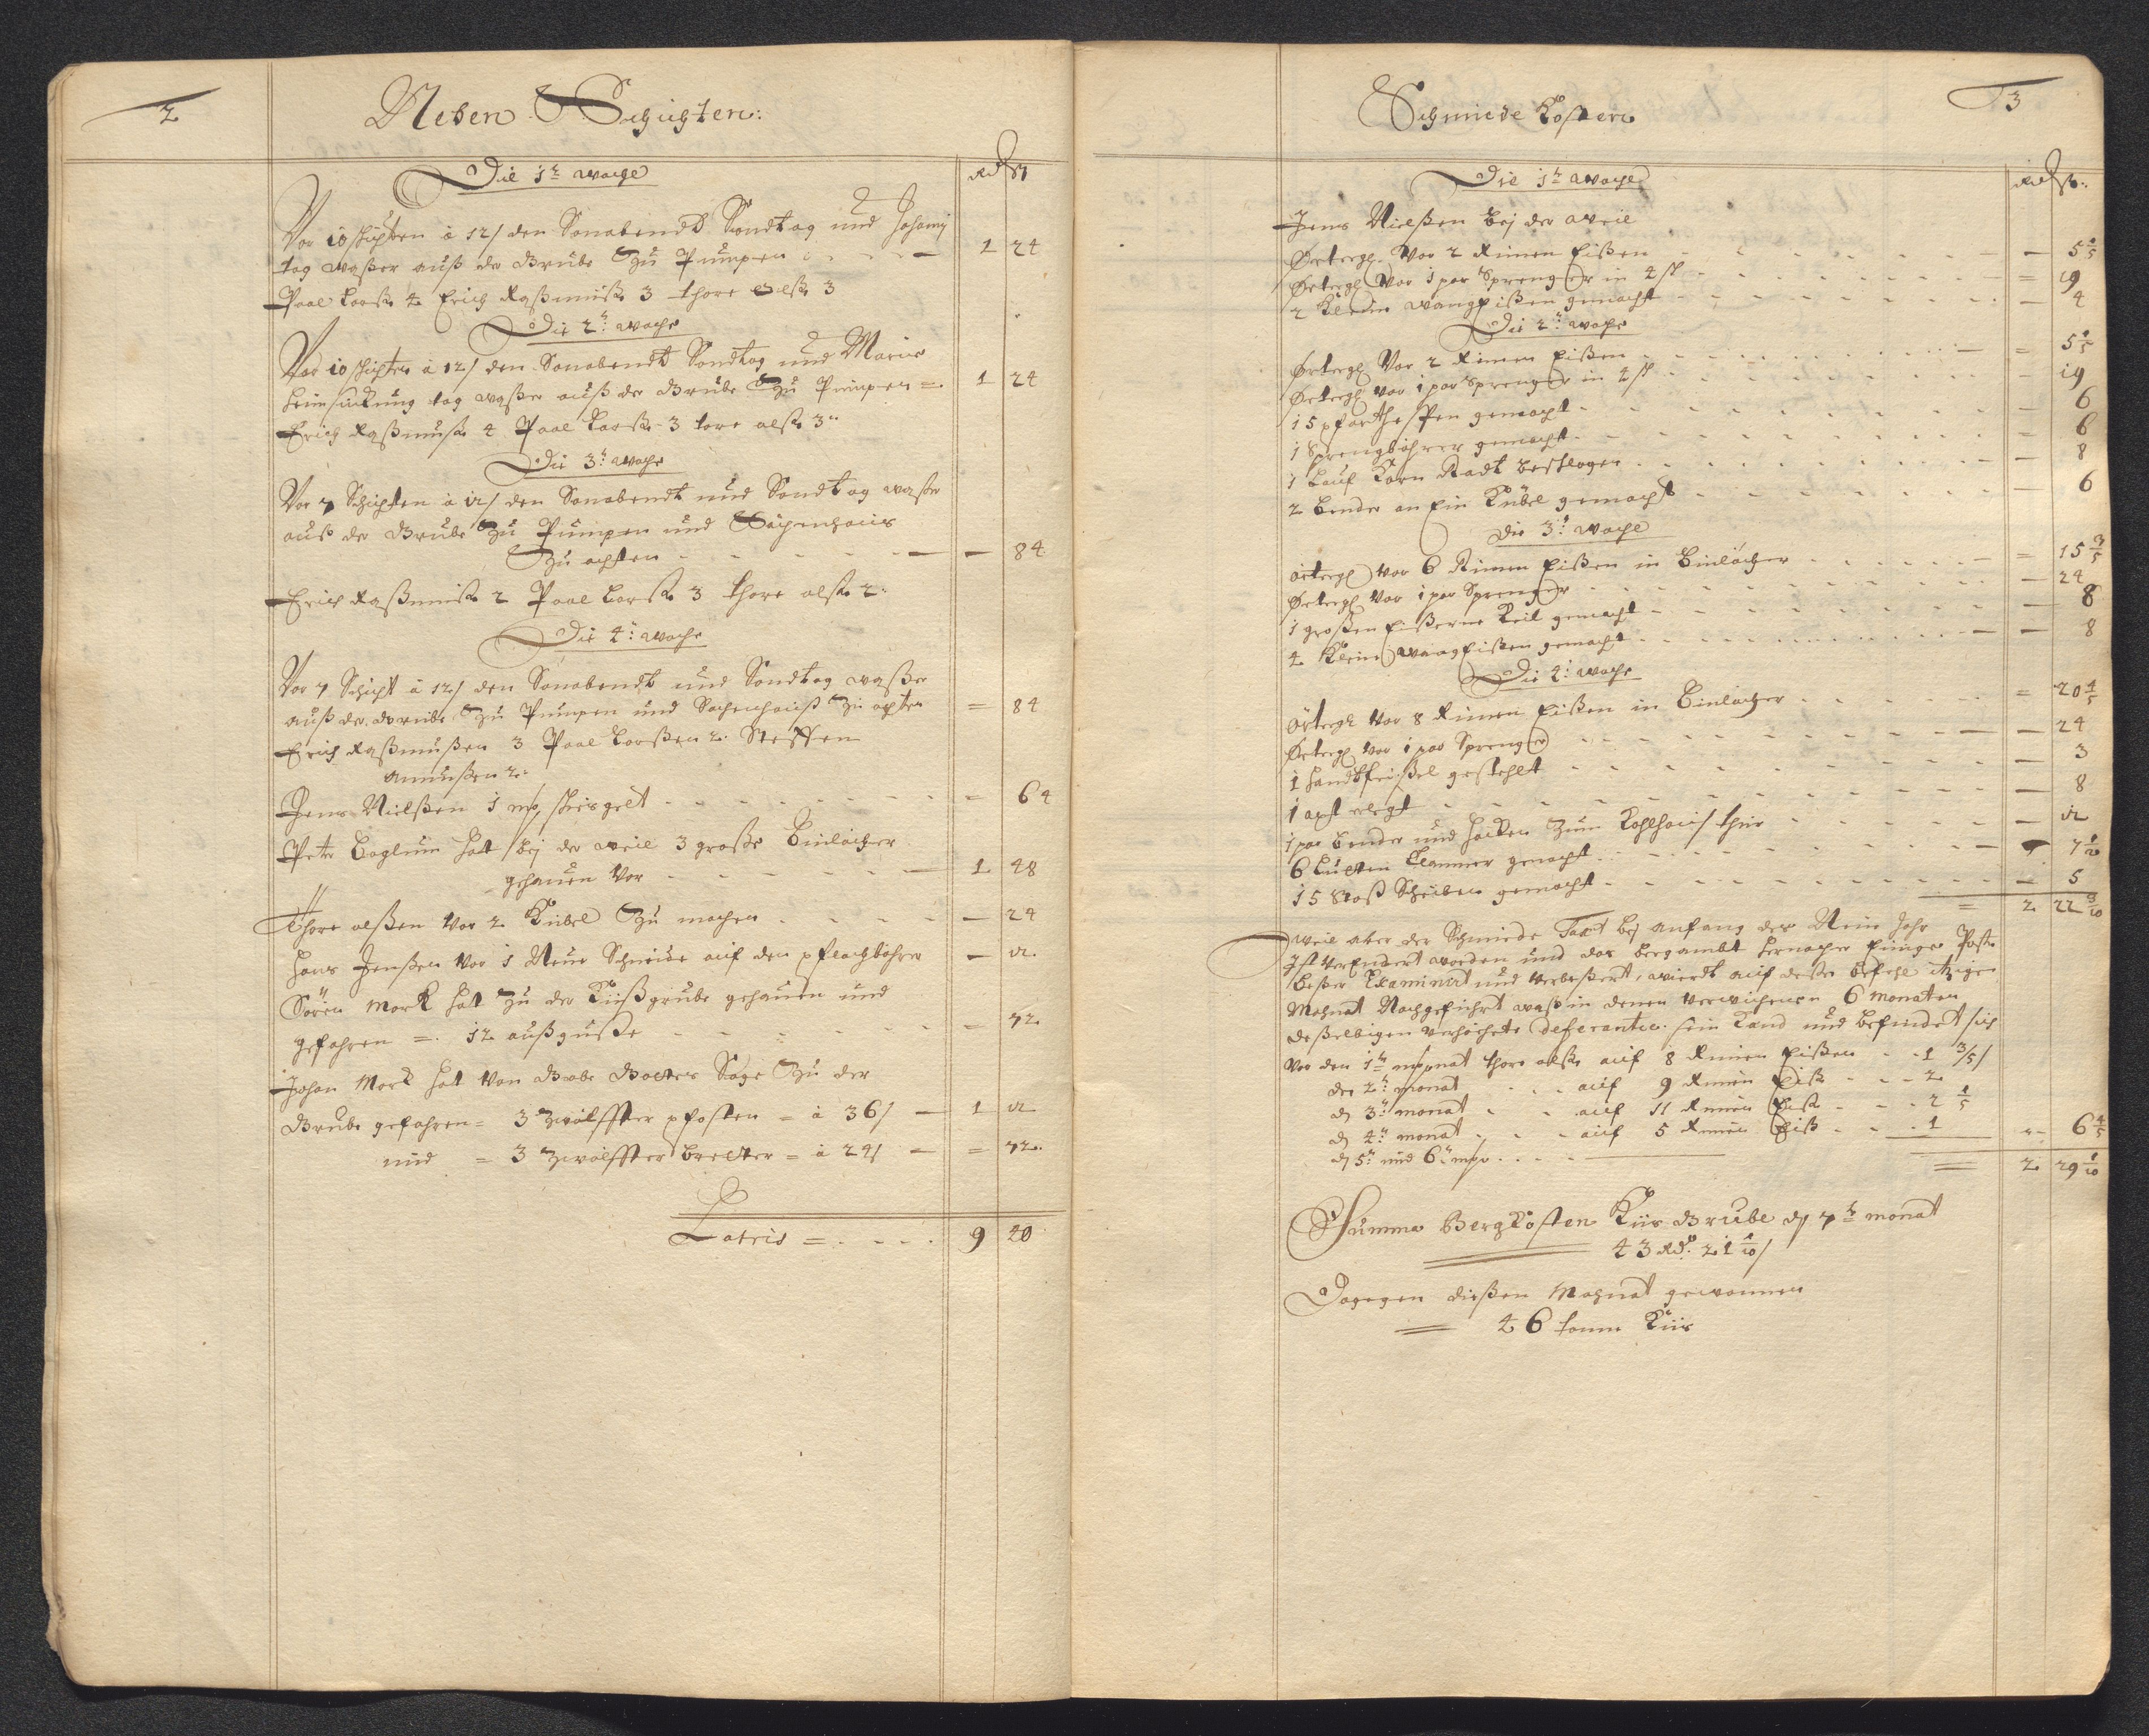 2
Neben Schichten:
Die 1te woche
Rd ß
Vor 10 schichten à 12/ den Sonabendt Sondtag und Johannj
tag waßer auß der Grube Zu Pumpen - - - 1 24
Paal Larß: 4 Erich Raßmuß: 3 Thore Olß: 3
Die 2te: woche
Vor 10 schichten à 12/ den Sonabendt Sondtag und Marie
heimsuckung tag waßer auß der Grube Zu Pumpen = 1 24
Erich Raßmuß: 4 Paal Larß: 3 tore olß: 3
Die 3te: woche
Vor 7 Schichten à 12/ den Sonabendt und Sondtag waßer
auß der Grube Zu Pumpen und Sachenhaus
Zu achten - - - - - 84
Erich Raßmuß: 2 Paal Larß: 3 Thore olß: 2:
Die 4te: woche
Vor 7 Schicht à 12/ den Sonabendt und Sondtag waßer
auß der Grube Zu Pumpen und Sachenhauß Zu achten = 84
Erich Raßmußen 3 Paal Larßen 2. Steffen
Amunßen 2:
Jens Nielßen 1 mo, gelt - - - - = 64
Peter Baglum hat bej der weil 3 große Binlöcher
gehauen Vor - - - - - 1 48
Thore olßen Vor 2 Kübel Zu machen - - - - 24
Hans Jenßen Vor 1 Neue Schneide auf den pflachbohrer - 12
Sören Mork hat Zu der Kiißgrube gehauen und
gefahren =. 12 außguße - - - - - = 72
Johan Mork hat Von Sage Zu der
Grube gefahren = 3 Zwölffter pfosten = à 36/ - 1 12
und = 3 Zwölffter Bretter = à 24/ - = 72.
Latris = - - - 9 40
3
Schmiede Kosten
Die 1te woche
Rd ß:
Jens Nielßen bej der weil
Örtergl. Vor 2 Rimen Eißen - - - - 5 1/5
Örtergl Vor 1 par Sprenger in 4 st - - - = 19
2 Kleine wangeißen gemacht - - - - 4
Die 2te: woche
Örtergl Vor 2 Rimen Eißen - - - = 5 1/5
Örtergl vor 1 par Sprenger in 4 st - - - 19
15 gemacht - - - - 6
1 Sprengbohrer gemacht - - - = 6
1 Lauf Karn Radt beschlagen - - - - 8
2 Bender an Ein Kübel gemacht - - - - 6
Die 3te: woche
örtergl vor 6 Rimen Eißen in Binlöcher - - - = 15 3/5
Örtergl Vor 1 par Sprenger - - - - 24
1 großen Eißerne Keil gemacht - - - - 8
4 Kleine wangEißen gemacht - - - - 8
Die 4te: woche
örtergl Vor 8 Rimen Eißen in Binlöcher - - - = 20 4/5
Örtergl vor 1 par Sprenger - - - - 24
1 handtfeißel gestehlt - - - - 3
1 axt - - - - 8
1 par Bender und hacken Zum Kohlhaus thür - - - - 12
6 Klammer gemacht - - - - 7 1/10
15 Scheiben gemacht - - - - 5
= 2 22 3/10
weil aber der Schmiede Taxt bej anfang des Neue Jahr
Ist verEndert worden und das bergambt hernacher Einiger Poste
beßer Examinirt und verbeßert, wierdt auf deßen befehl itzige
Mohnat Nachgeführt waß in denen verwichenen 6 Monaten
deßelbigen verhöhete deferantie sein Kand und befindet sich
vor den 1te monat thore olß: auf 8 Rimen Eißen - - 1 3/5/
der 2te: monat - - auf 9 Rimen Eiß - - 2
d 3te: monat - - auf 11 Rimen Eiß - - 2 1/5
d 4te: monat - - auf 5 Rimen Eiß - - 1
d 5te: und 6te mo - - - 6 4/5
= 2 29 1/10
Summa BergKosten Kiis Grube d 7te monat
43 Rd: 21 1/10/
Dagegen dießen Mohnat gewonnen
46 tonne Kiis